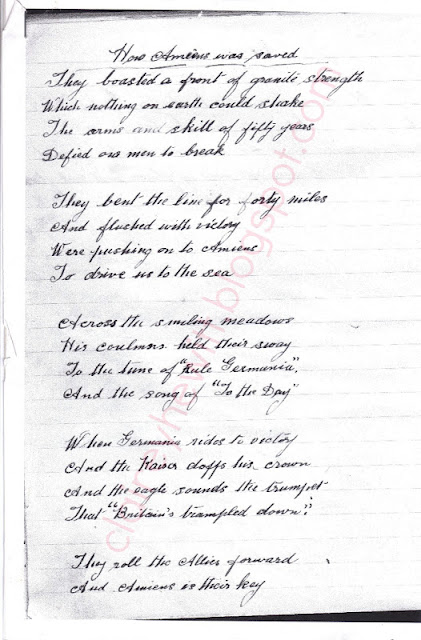 How Amiens was saved
They boasted a front of granite strength
Which nothing on earth could shake
The arms and skill of fifty years
Defied our men to break
They bent the line for forty miles
And flushed with victory
Were pushing on to Amiens
To drive us to the sea
Across the smiling meadows
His coulmns held their sway
To the tune of "Rule Germania".
And the song of "To the Day"
When Germania rides to victory
And the Kaiser doffs his crown
And the eagle sounds the trumpet
That "Britain's trampled down."
They roll the Allies forward
And Amiens is their key